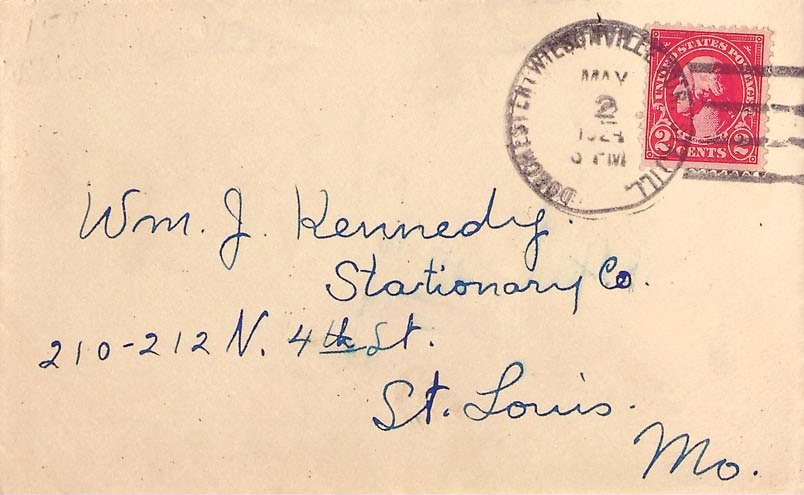 DORCHESTER (WILSONVILLE
ILL
MAY
2
1924
PM
UNITED STATES POSTAGE
2 CENTS 2
Wm. J. Kennedy.
Stationary Co.
210-212 N. 4th St.
St. Louis.
Mo.